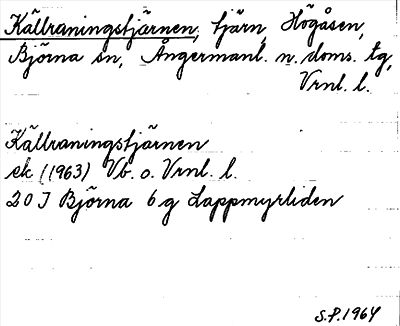 Källraningstjärnen, tjärn, Högåsen,
Björna sn, Ångermanl. n. doms. tg,
Vrnl. l.
Källraningstjärnen
ek (1963) Vb. o. Vrnl. l.
20 I Björna 6 g Lappmyrliden
S.P. 1964